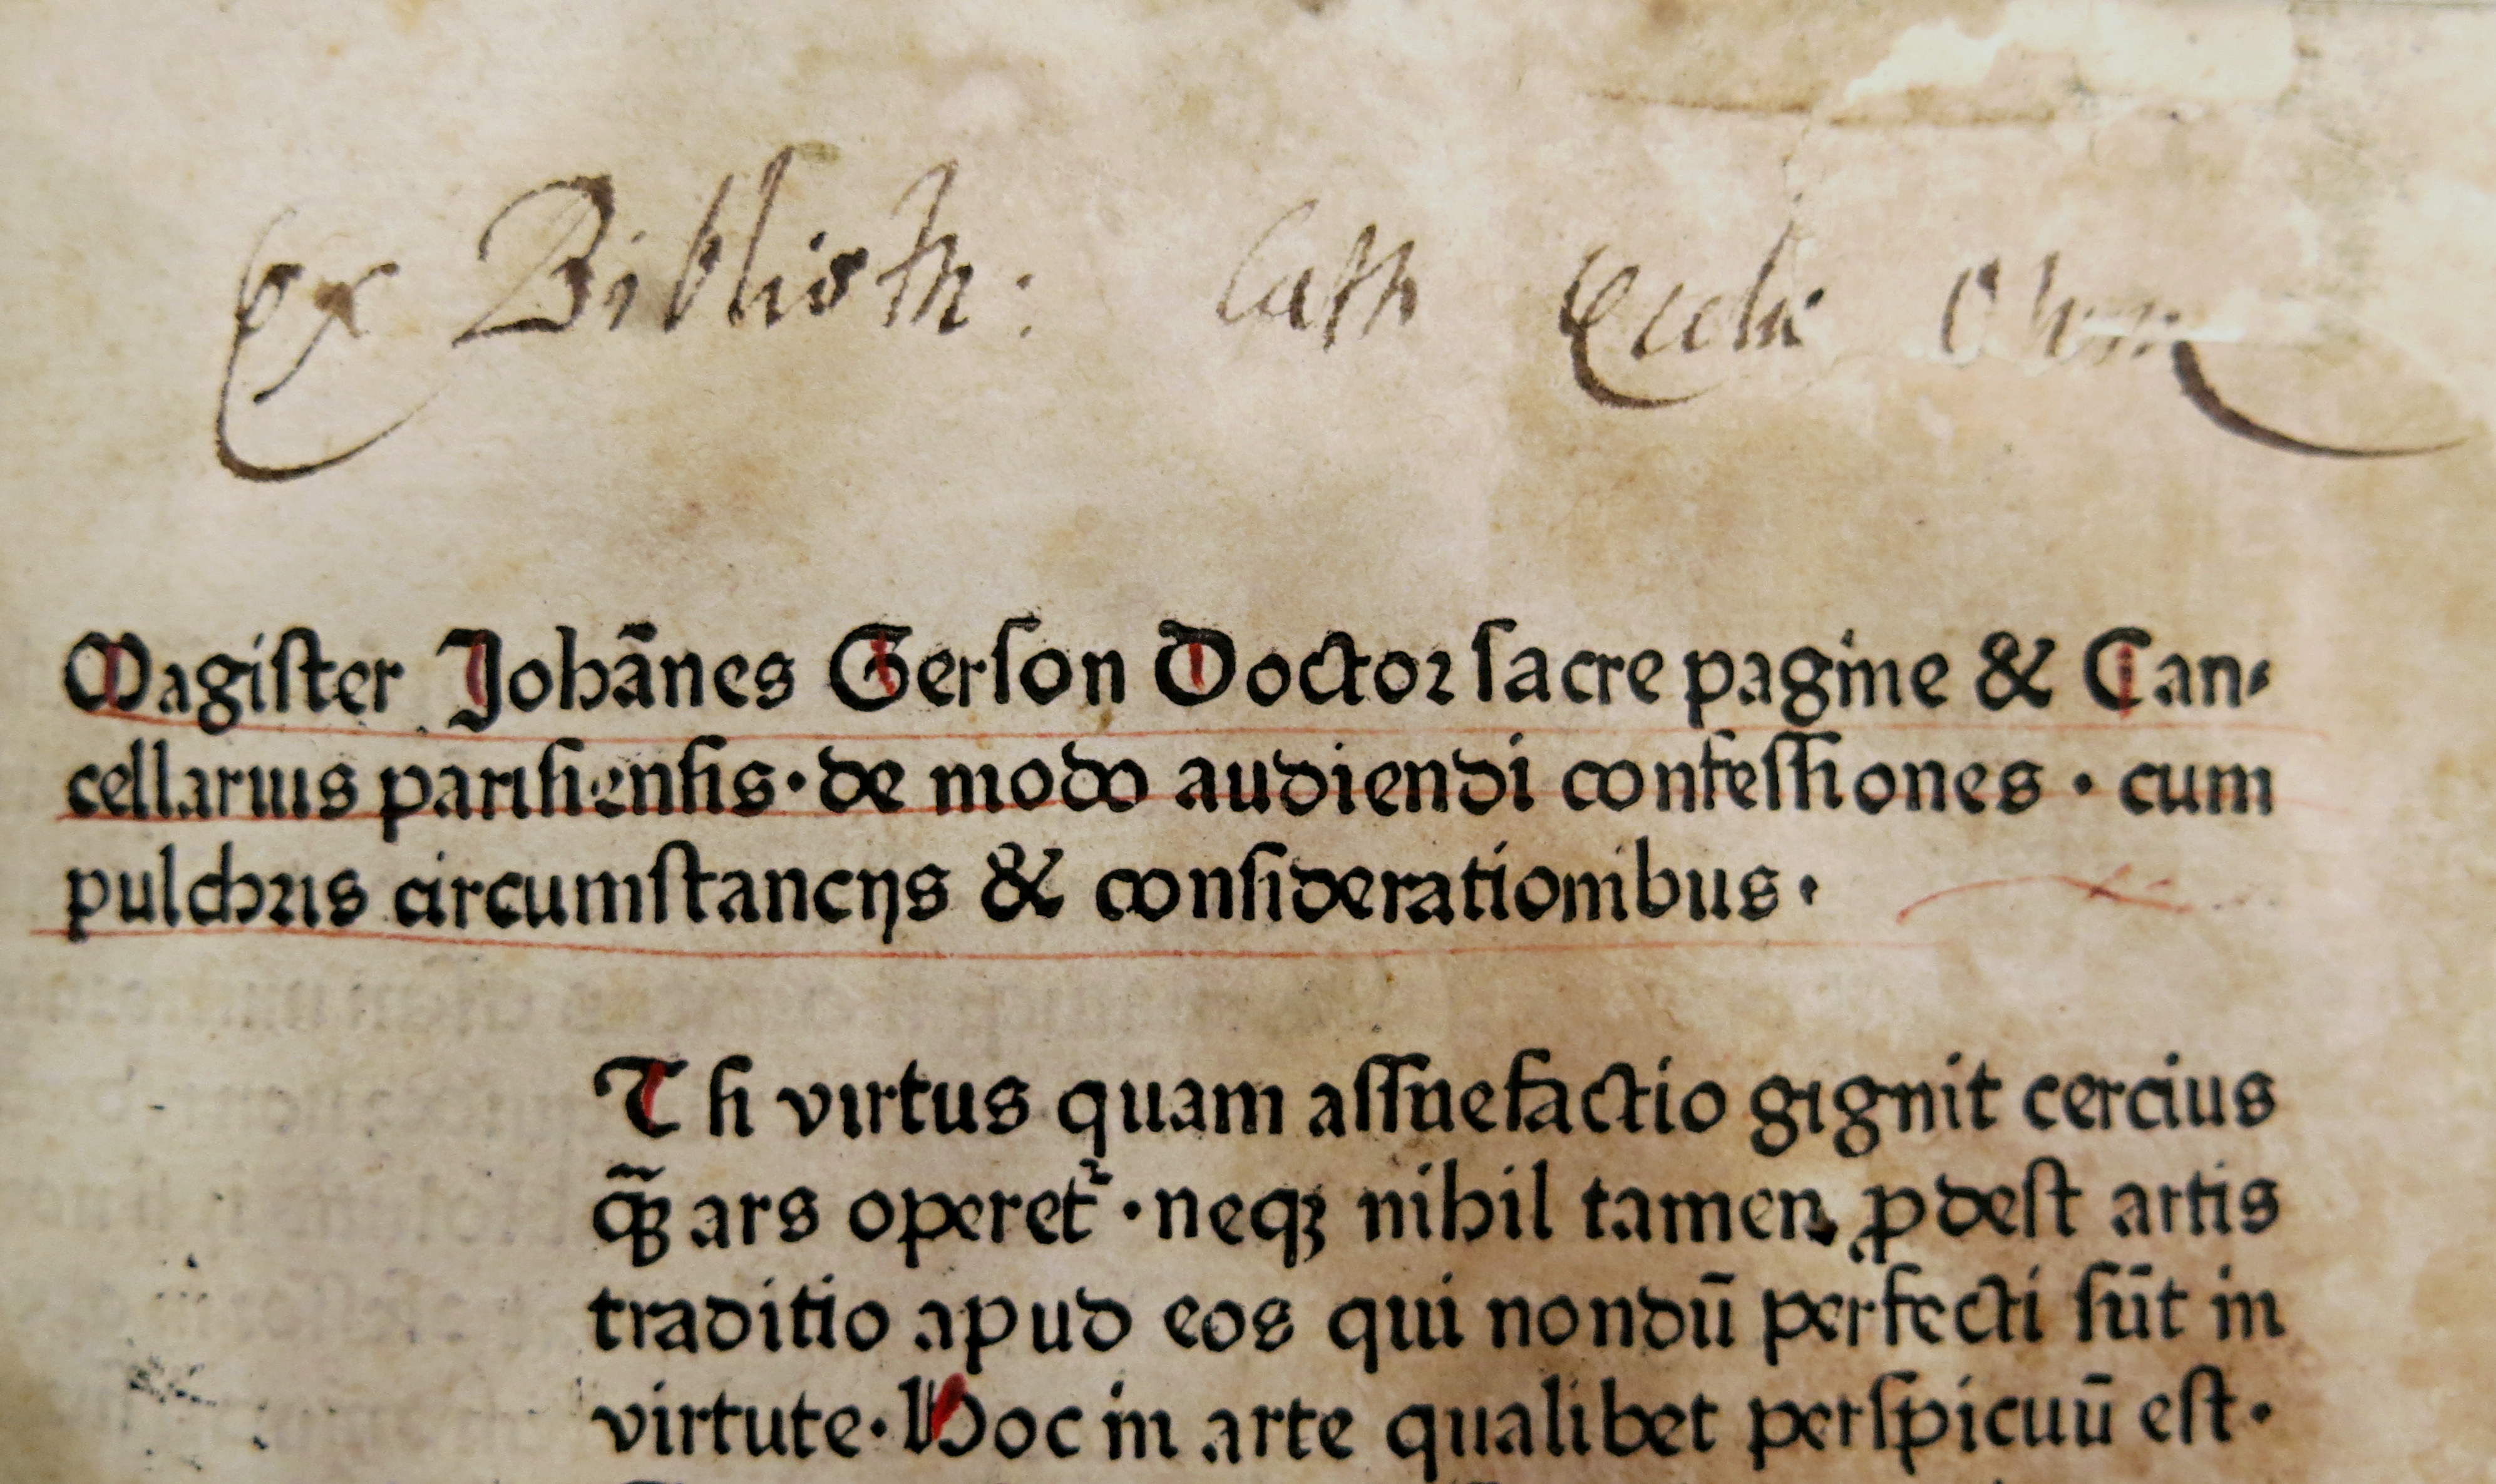 ex Biblioth: Cath Eccle
Magiſter Johãnes Gerſon Doctor ſacre pagine & Can⸗
cellarius pariſienſis· de modo audiendi confeſſiones · cum
pulchris circumſtancijs & conſiderationibus ·
Tſi virtus quam aſſuefactio gignit cercius
q̃ꝫ ars operet᷑ · neqꝫ nihil tamen ꝓdeſt artis
traditio apud eos qui nondū perfecti ſūt in
virtute· Hoc in arte qualibet perſpicuū eſt·